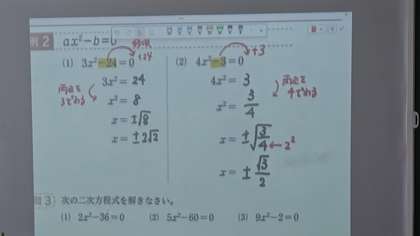 例 2 ax²-b=0
移項
(1) 3x²-24=0
+24
3x² = 24
両辺を
3でわる
x² = 8
x = ±√8
x = ±2√2
(2) 4x²-3=0
+3
4x² = 3
両辺を
4でわる
x² = 3/4
x = ±√3/4 ← 2²
x = ± √3/2
問3 次の二次方程式を解きなさい。
(1) 2x²-36=0 (2) 5x²-60=0 (3) 9x²-2=0